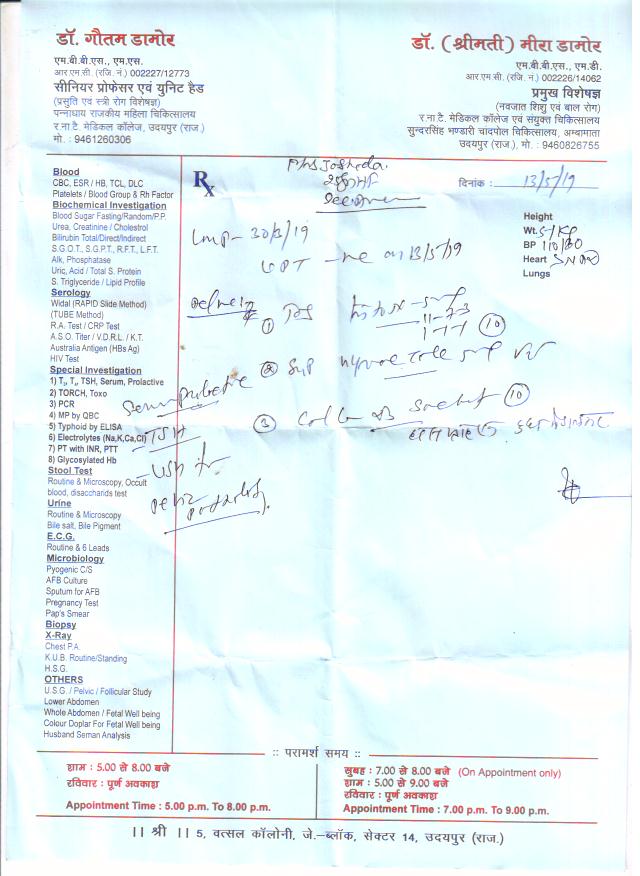 डॉ. गौतम डामोर
एम.बी.बी.एस., एम.एस.
आर.एम.सी. (रजि. नं.) 002227/12773
सीनियर प्रोफेसर एवं युनिट हैड
(प्रसुति एवं स्त्री रोग विशेषज्ञ)
पन्नाधाय राजकीय महिला चिकित्सालय
र.ना.टै. मेडिकल कॉलेज, उदयपुर (राज.)
मो. : 9461260306
डॉ. (श्रीमती) मीरा डामोर
एम.बी.बी.एस., एम.डी.
आर.एम.सी. (रजि. नं.) 002226/14062
प्रमुख विशेषज्ञ
(नवजात शिशु एवं बाल रोग)
र.ना.टै. मेडिकल कॉलेज एवं संयुक्त चिकित्सालय
सुन्दरसिंह भण्डारी चांदपोल चिकित्सालय, अम्बामाता
उदयपुर (राज.), मो. : 9460826755
Rx
दिनांक : 13/5/19
Height
Wt.
BP 110/80
Heart
Lungs
Lmp - 30/3/19
UPT -ve on 13/5/19
①
⑩
②
③ ⑩
TSH
Blood
CBC, ESR / HB, TCL, DLC
Platelets / Blood Group & Rh Factor
Biochemical Investigation
Blood Sugar Fasting/Random/P.P.
Urea, Creatinine / Cholestrol
Bilirubin Total/Direct/Indirect
S.G.O.T., S.G.P.T., R.F.T., L.F.T.
Alk, Phosphatase
Uric, Acid / Total S. Protein
S. Triglyceride / Lipid Profile
Serology
Widal (RAPID Slide Method)
(TUBE Method)
R.A. Test / CRP Test
A.S.O. Titer / V.D.R.L. / K.T.
Australia Antigen (HBs Ag)
HIV Test
Special Investigation
1) T₃, T₄, TSH, Serum, Prolactive
2) TORCH, Toxo
3) PCR
4) MP by QBC
5) Typhoid by ELISA
6) Electrolytes (Na,K,Ca,Cl)
7) PT with INR, PTT
8) Glycosylated Hb
Stool Test
Routine & Microscopy, Occult
blood, disacchards test
Urine
Routine & Microscopy
Bile salt, Bile Pigment
E.C.G.
Routine & 6 Leads
Microbiology
Pyogenic C/S
AFB Culture
Sputum for AFB
Pregnancy Test
Pap's Smear
Biopsy
X-Ray
Chest P.A.
K.U.B. Routine/Standing
H.S.G.
OTHERS
U.S.G. / Pelvic / Follicular Study
Lower Abdomen
Whole Abdomen / Fetal Well being
Colour Doplar For Fetal Well being
Husband Seman Analysis
:: परामर्श समय ::
शाम : 5.00 से 8.00 बजे
रविवार : पूर्ण अवकाश
Appointment Time : 5.00 p.m. To 8.00 p.m.
सुबह : 7.00 से 8.00 बजे (On Appointment only)
शाम : 5.00 से 9.00 बजे
रविवार : पूर्ण अवकाश
Appointment Time : 7.00 p.m. To 9.00 p.m.
।। श्री ।। 5, वत्सल कॉलोनी, जे.–ब्लॉक, सेक्टर 14, उदयपुर (राज.)